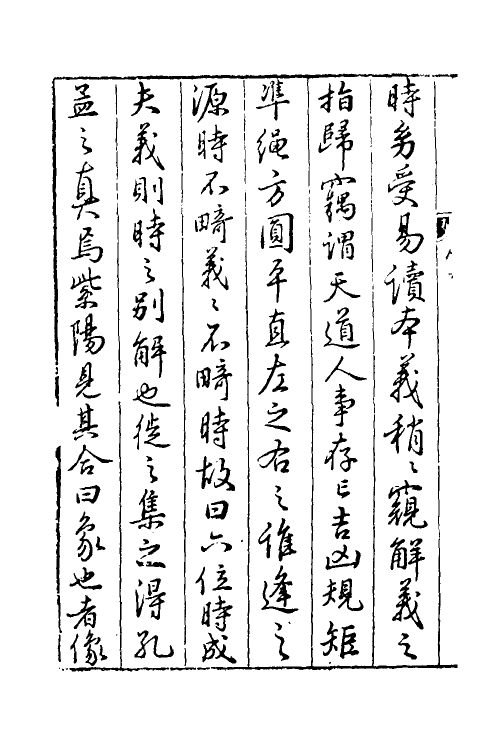 時為受易讀本義稍〻窺解義之
指歸竊謂天道人事存亡吉凶規矩
準繩方圓平直左之右之誰逢之
源時不畸義〻不畸時故曰六位時成
夫義則時之別解也從之集之得孔
孟之真焉紫陽見其合曰象也者像